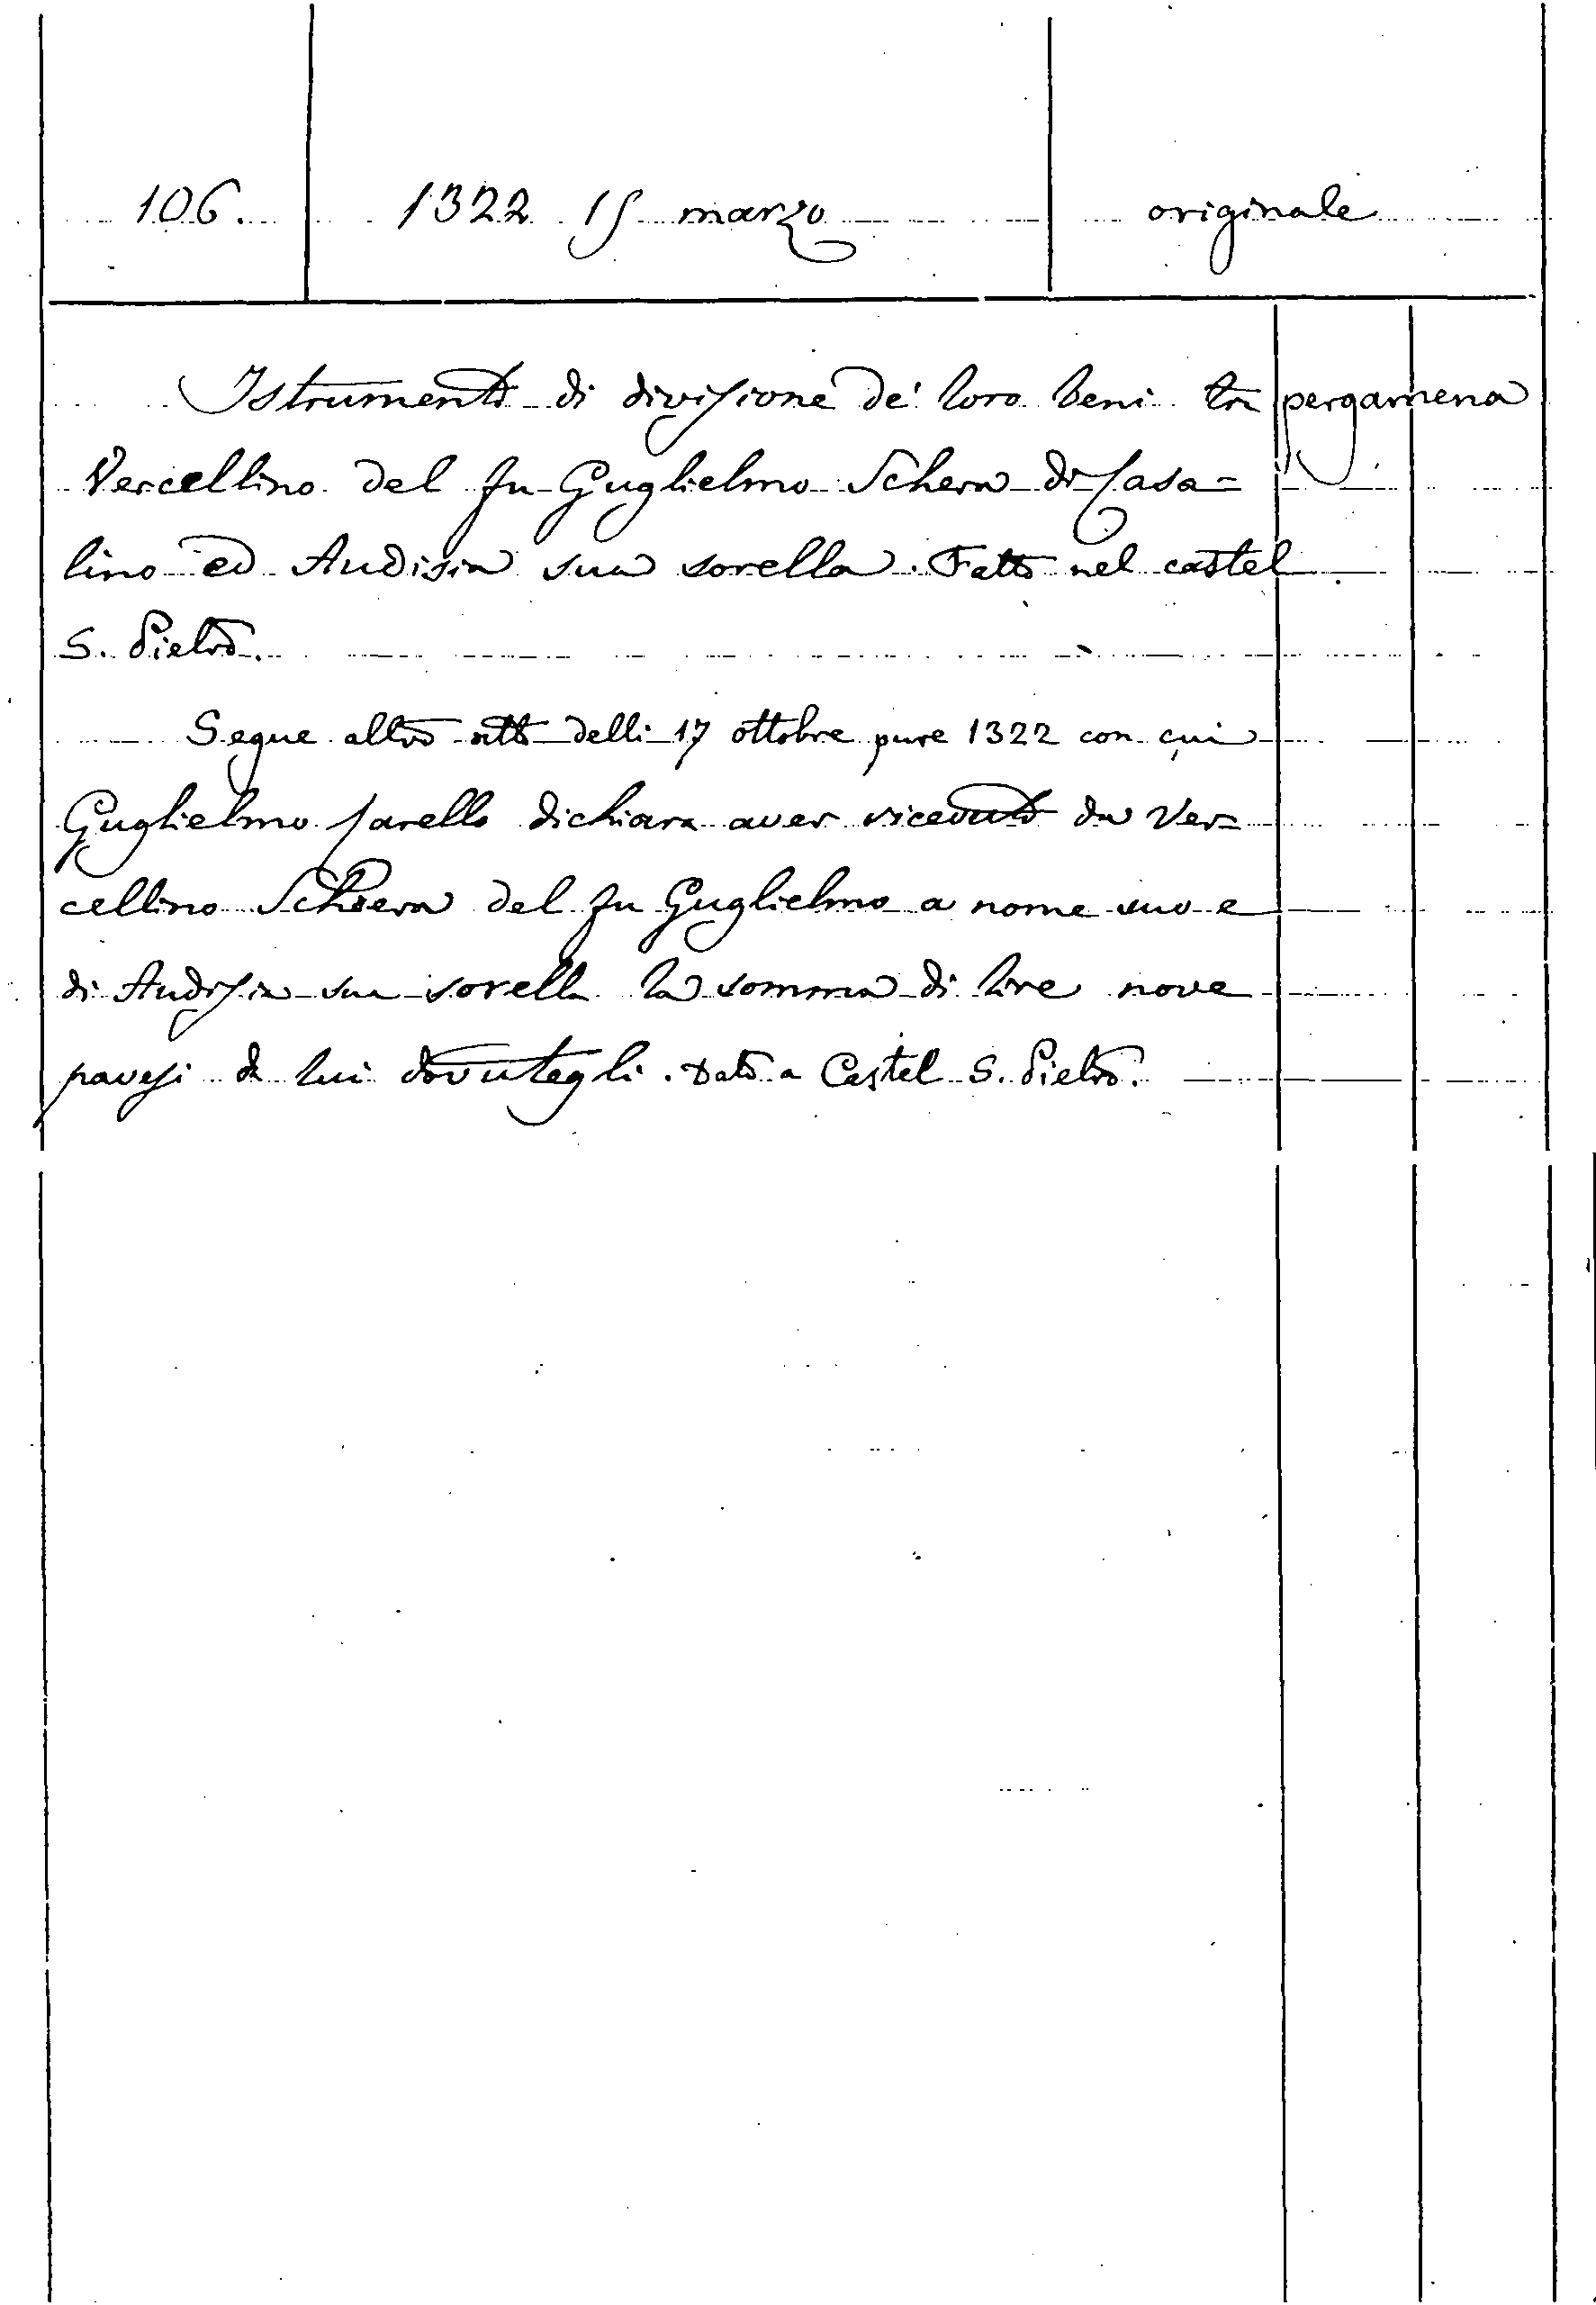 106. 1322 15 marzo originale
Istrumento di divisione de' loro beni tra pergamena
Vercellino del fu Guglielmo Schera di Casa=
lino ed Audisia sua sorella. Fatto nel castel
S. Pietro.
Segue altro atto delli 17 ottobre pure 1322 con cui
Guglielmo dichiara aver ricevuto da Ver=
cellino Schiera del fu Guglielmo a nome suo e
di Audisia sua sorella la somma di lire nove
pavesi da lui dovutegli. Dato a Castel S. Pietro.